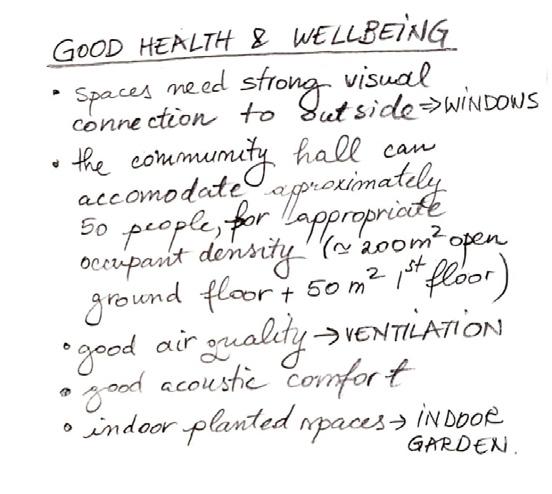 GOOD HEALTH & WELLBEING
• spaces need strong visual
connection to outside ⇒ WINDOWS
• the community hall can
accomodate approximately
50 people, for "appropriate
occupant density" (≈ 200m² open
ground floor + 50 m² 1st floor)
• good air quality → VENTILATION
• good acoustic comfort
• indoor planted spaces → INDOOR
GARDEN.